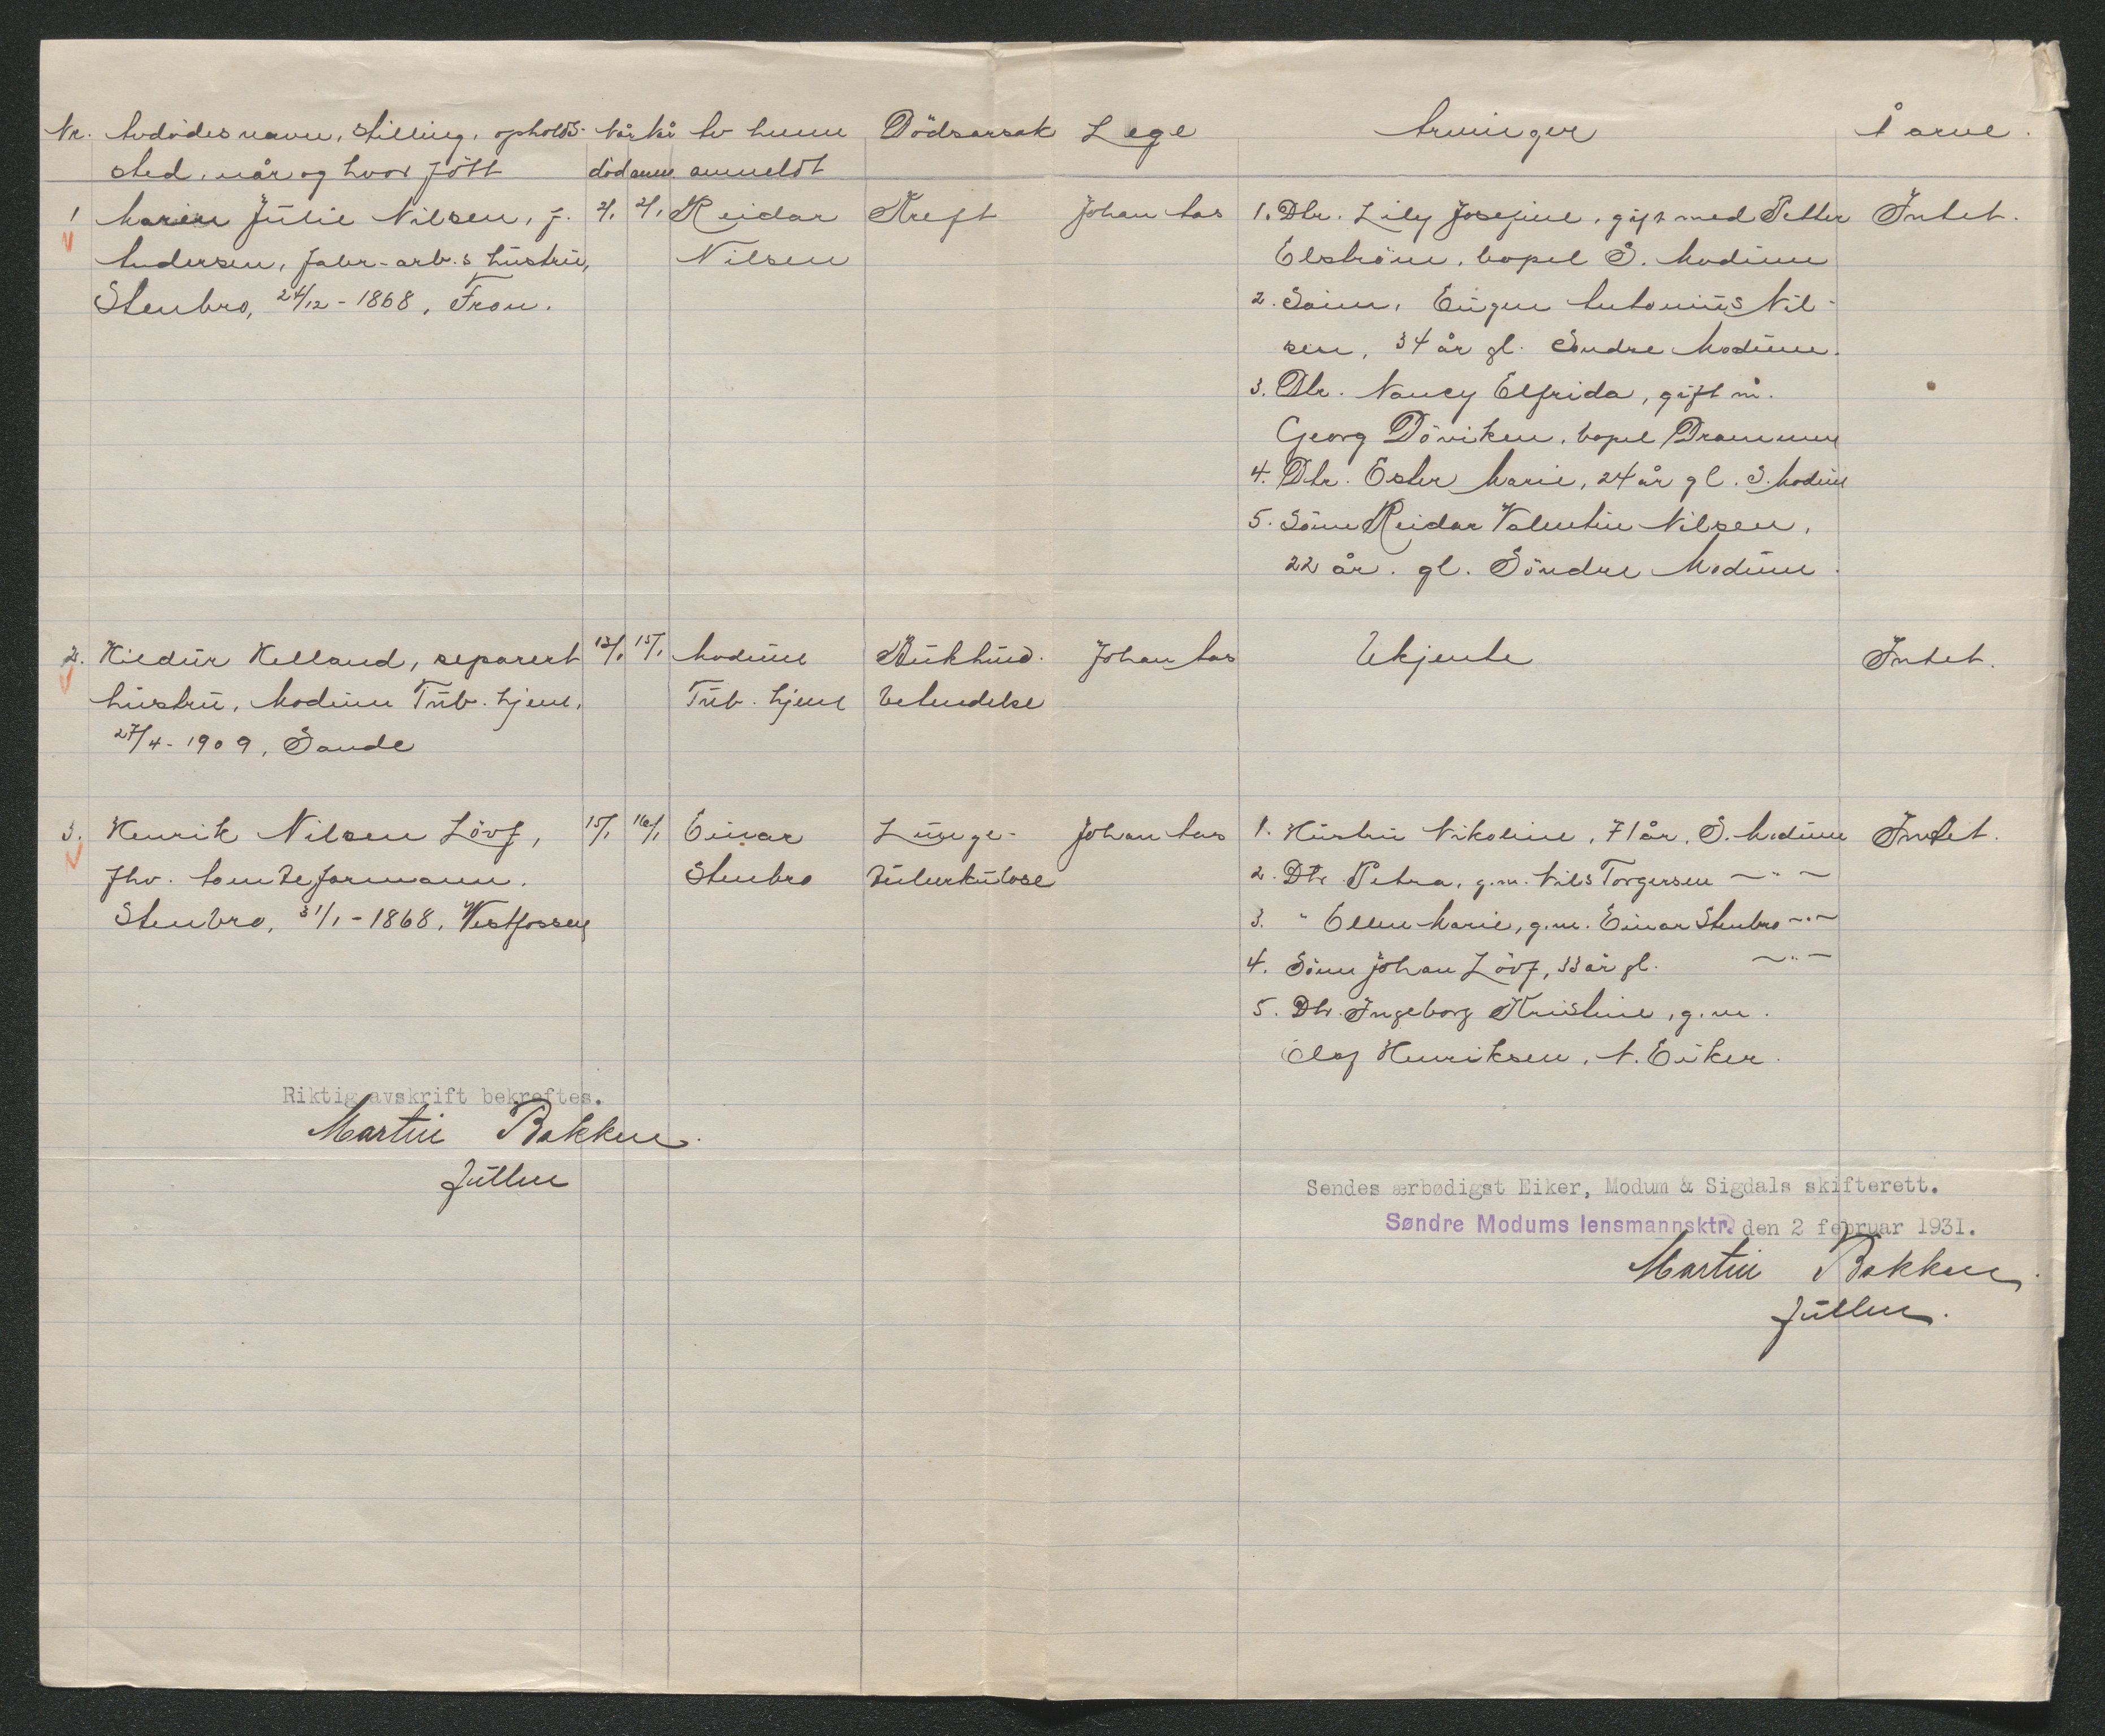 Nr. Avdødes navn, stilling, opholds- Når Når Av hvem Dödsårsak Lege Arvinger Å arve.
sted, når og hvor födt död anm. anmeldt
1 Maren Julie Nilsen, f. 2/1 2/1 Reidar Kreft Johan Aas 1. Dtr. Lily Josefine, gift med Petter Intet.
Andersen, fabr-arb.s hustru, Nilsen Elström, bopel S. Modum
Stenbro, 24/12-1868, Fron. 2. Sönn, Eugen Antonius Nil-
sen, 34 år gl. Söndre Modum.
3. Dtr. Nancy Elfrida, gift m.
Georg Döviken, bopel Drammen
4. Dtr. Ester Marie, 24 år gl. S. Modum
5. Sönn Reidar Valentin Nilsen,
22 år. gl. Söndre Modum.
2. Hildur Helland, separert 13/1 15/1 Modum Bukhind- Johan Aas Ukjente Intet.
hustru, Modum Tub. hjem, Tub. hjem betendelse
27/4-1909, Sande
3. Henrik Nilsen Lövf, 15/1 16/1 Einar Lunge- Johan Aas 1. Hustru Nikoline, 71 år, S. Modum Intet.
fhv. tomteformann. Stenbro tuberkulose 2. Dtr. Petra, g.m. Nils Torgersen —"—
Stenbro, 31/1-1868, Vestfossen 3. " Ellen Marie, g.m. Einar Stenbro —"—
4. Sönn Johan Lövf, 33 år gl. —"—
5. Dtr. Ingeborg Kristine, g.m.
Olaf Henriksen, N. Eiker.
Riktig avskrift bekreftes.
Martin Bakken.
fullm
Sendes ærbødigst Eiker, Modum & Sigdals skifterett.
Søndre Modums lensmannsktr. den 2 februar 1931.
Martin Bakken.
fullm.